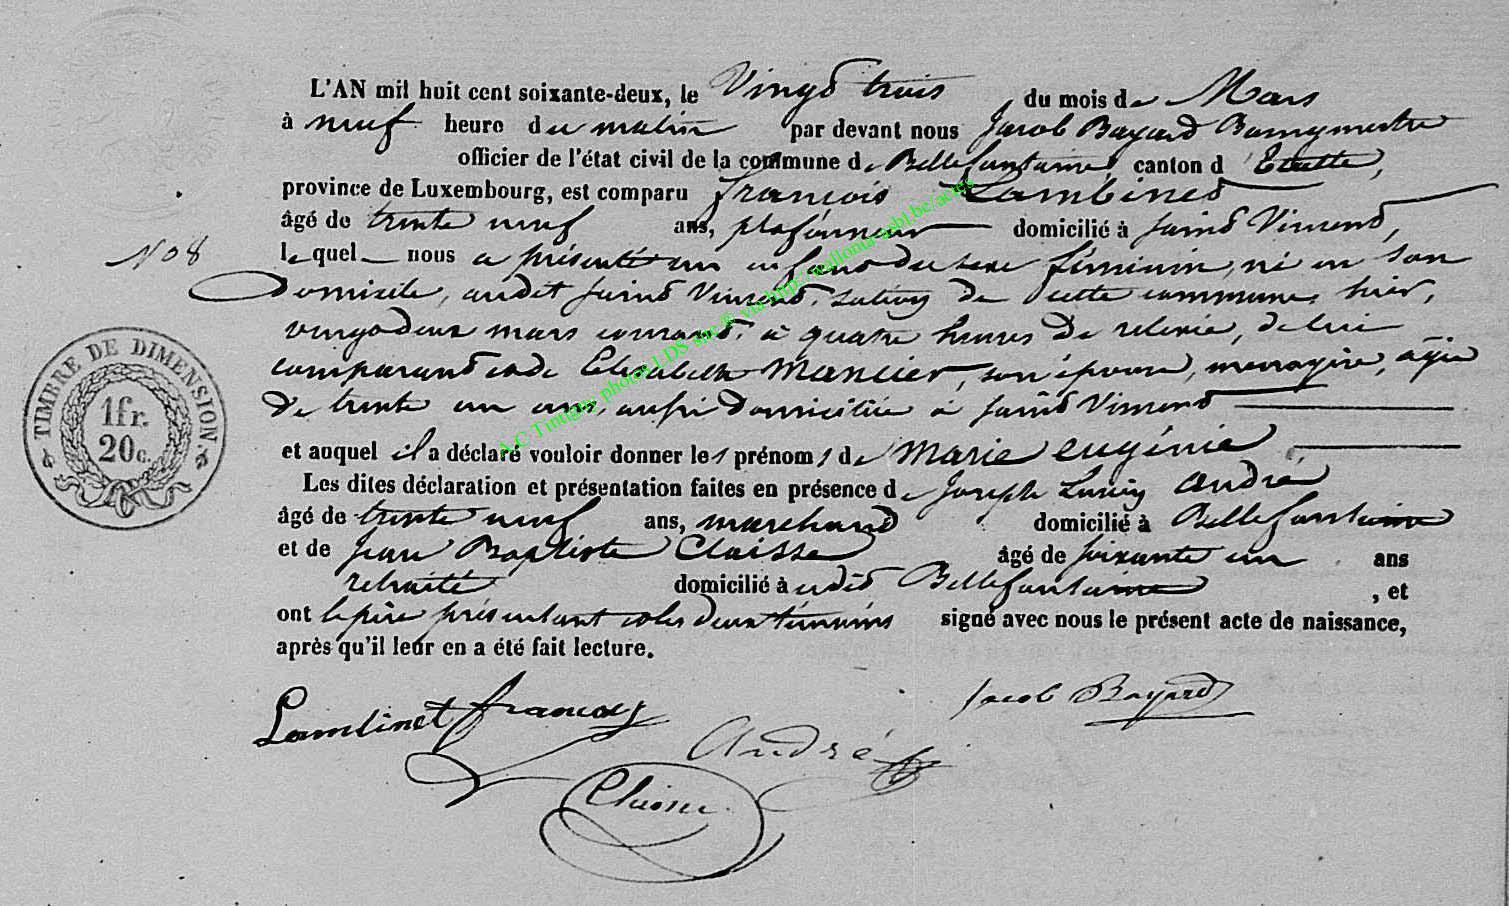 L'AN mil huit cent soixante-deux, le Vingt trois du mois de Mars
à neuf heure du matin par devant nous Jacob Bayard Bourgmestre
officier de l'état civil de la commune de Bellefontaine, canton d'Etalle,
province de Luxembourg, est comparu françois Lambinet
âgé de trente neuf ans, plafonneur domicilié à Saint Vincent,
N° 8
lequel nous a présenté un enfant du sexe féminin, né en son
domicile, audit Saint Vincent, section de cette commune, hier,
vingt deux mars courant, à quatre heures de relevée, de lui
comparant et de Elisabeth Mancier, son épouse, menagère, âgée
de trente un ans, aussi domiciliée à Saint Vincent
et auquel il a déclaré vouloir donner les prénoms de Marie eugénie
Les dites déclaration et présentation faites en présence de Joseph Lucien andré
âgé de trente neuf ans, marchand domicilié à Bellefontaine
et de Jean Baptiste Claisse âgé de soixante un ans
retraité domicilié à udit Bellefontaine, et
ont le père présentant et les deux témoins signé avec nous le présent acte de naissance,
après qu'il leur en a été fait lecture.
TIMBRE DE DIMENSION.
1 fr.
20 c.
Jacob Bayard
Lambinet françois
André
Claisse
A.C Tintigny photos LDS sur ® via http://wallonia-asbl.be/actes